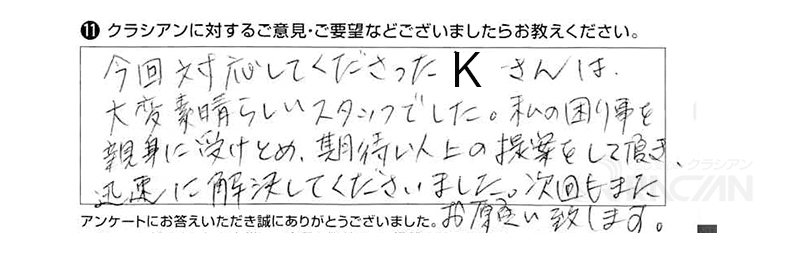 ⓫ クラシアンに対するご意見・ご要望などございましたらお教えください。
今回対応してくださった K さんは、
大変素晴らしいスタッフでした。私の困り事を
親身に受けとめ、期待い人上の提案をして頂き、
迅速に解決してくださいました。次回もまた
お願い致します。
アンケートにお答えいただき誠にありがとうございました。
クラシアン